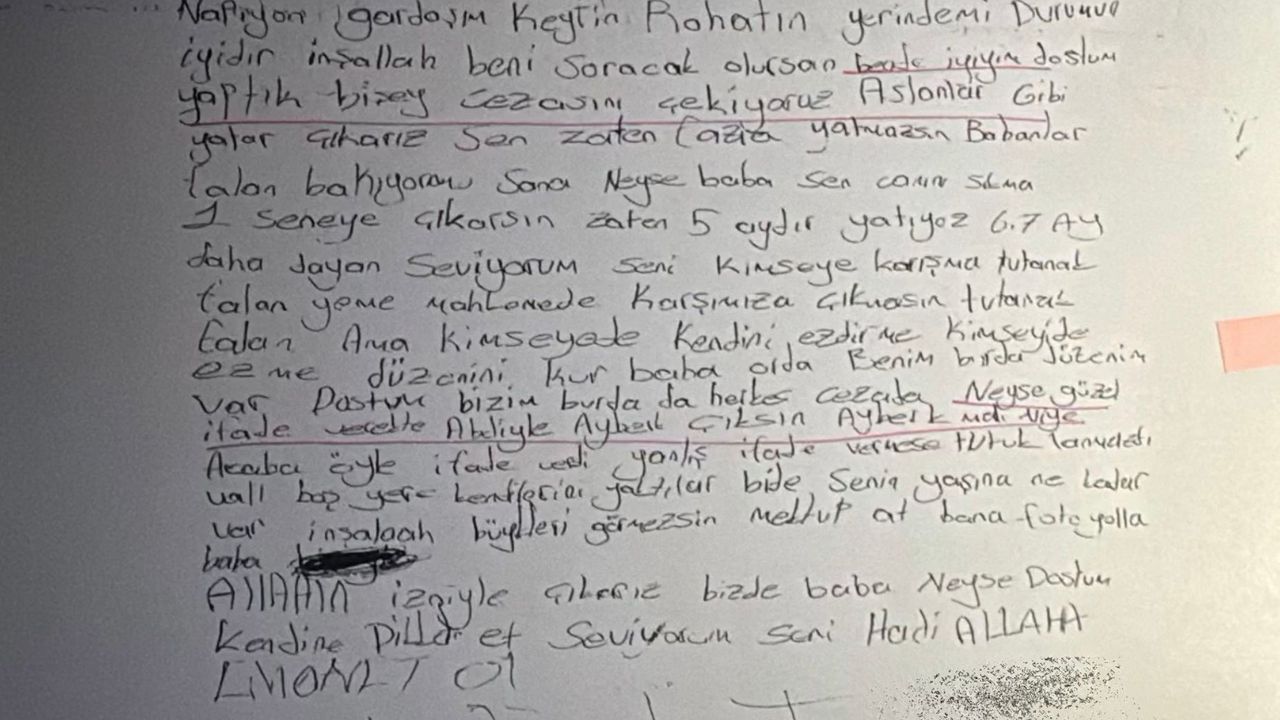 Napıyon gardaşım Keyfin Rahatın yerindemi Durumun
iyidir inşallah beni Soracak olursan bende iyiyim dostum
yaptık bişey cezasını çekiyoruz Aslanlar Gibi
yatar çıkarız Sen zaten fazla yatmazsın Babanlar
falan bakıyorau Sana Neyse baba sen canını sıkma
1 Seneye çıkarsın zaten 5 aydır yatıyoz 6.7 AY
daha dayan Seviyorum seni Kimseye karışma tutanak
falan yeme mahkemede Karşımıza çıkmasın tutanak
falan Ama kimseyede Kendini ezdirme Kimseyide
ezme düzenini Kur baba orda Benim burda düzenim
var Dostum bizim burda da herkes cezada Neyse güzel
ifade verelte Abdiyle Ayberk Çıksın Ayberk niye
Acaba öyle ifade verdi yanlış ifade vermese tutuk
vall boş yere yaktılar bide Senin yaşına ne kadar
var inşalaah büyükleri görmezsin mektup at bana foto yolla
baba
AllAHIN izniyle çıkarız bizde baba Neyse Dostum
Kendine Dikkat et Seviyorum seni Hadi ALLAHA
EMANET Ol